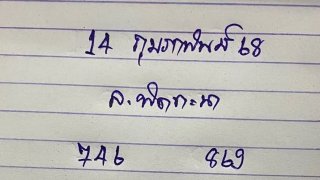 14 กุมภาพันธ์ 68
ล.พิตะนา
746 869